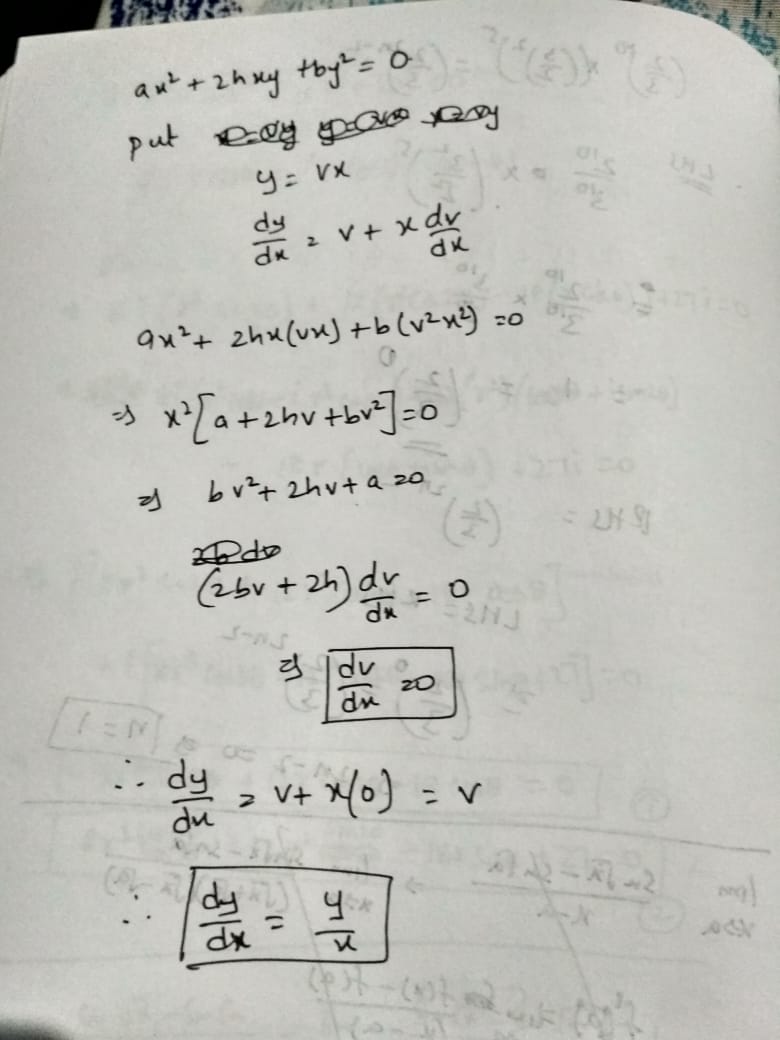 ax² + 2hxy + by² = 0
put
y = vx
dy/dx = v + x dv/dx
ax² + 2hx(vx) + b(v²x²) = 0
⇒ x²[a + 2hv + bv²] = 0
⇒ bv² + 2hv + a = 0
(2bv + 2h) dv/dx = 0
⇒ dv/dx = 0
∴ dy/dx = v + x(0) = v
∴ dy/dx = y/x